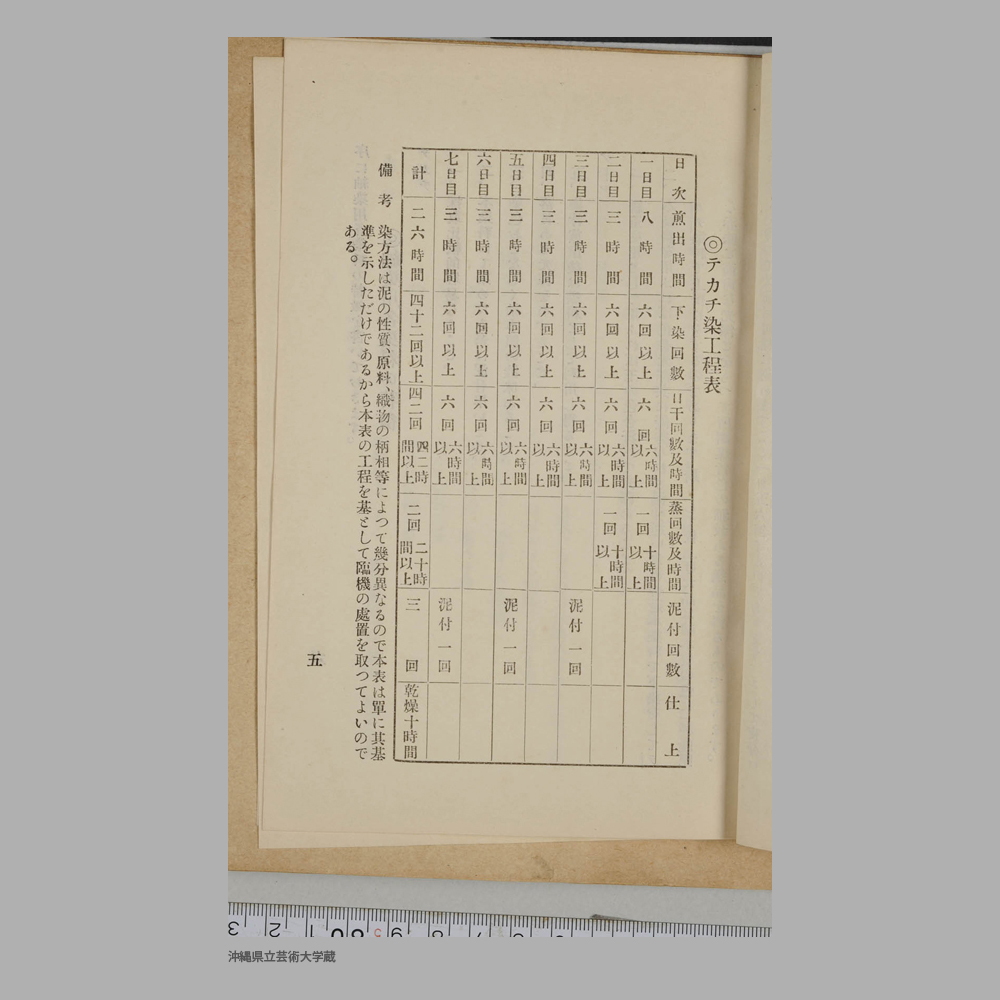 ◎テカチ染工程表
日次 煎出時間 下染回數 日干回數及時間 蒸回數及時間 泥付回數 仕上
一日目 八時間 六回以上 六回 六時間以上 一回 十時間以上
二日目 三時間 六回以上 六回 六時間以上 一回 十時間以上
三日目 三時間 六回以上 六回 六時間以上 泥付一回
四日目 三時間 六回以上 六回 六時間以上
五日目 三時間 六回以上 六回 六時間以上 泥付一回
六日目 三時間 六回以上 六回 六時間以上
七日目 三時間 六回以上 六回 六時間以上 泥付一回
計 二六時間 四十二回以上 四二回 四二時間以上 二回 二十時間以上 三回 乾燥十時間
備考 染方法は泥の性質、原料、織物の柄相等によつて幾分異なるので本表は單に其基
準を示しただけであるから本表の工程を基として臨機の處置を取つてよいので
ある。
五
3 2 1 80 9 8 7 6
沖縄県立芸術大学蔵